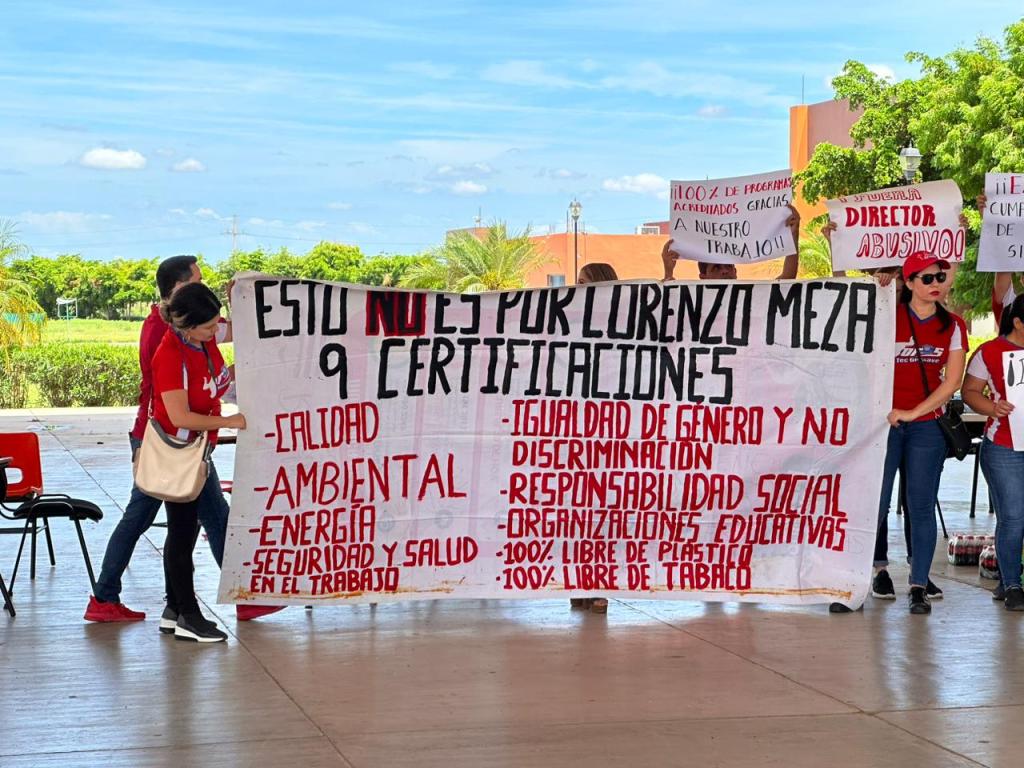 ESTO NO ES POR LORENZO MEZA
9 CERTIFICACIONES
-CALIDAD
-AMBIENTAL
-ENERGÍA
-SEGURIDAD Y SALUD
EN EL TRABAJO
-IGUALDAD DE GÉNERO Y NO
DISCRIMINACIÓN
-RESPONSABILIDAD SOCIAL
-ORGANIZACIONES EDUCATIVAS
-100% LIBRE DE PLÁSTICO
-100% LIBRE DE TABACO
¡¡100% DE PROGRAMAS
ACREDITADOS GRACIAS
A NUESTRO
TRABAJO!!
¡FUERA
DIRECTOR
ABUSIVO!
CUMP
DE
SI